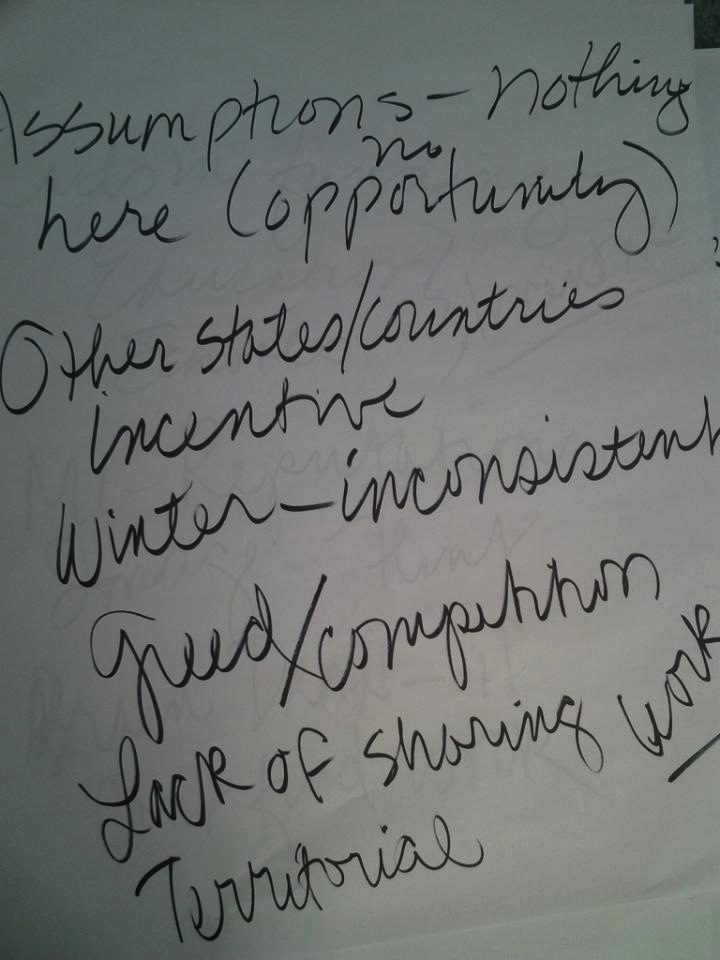 Assumptions - nothing
no
here (opportunity)
Other states/countries
incentive
Winter - inconsistent
Greed/competition
Lack of sharing work
Territorial